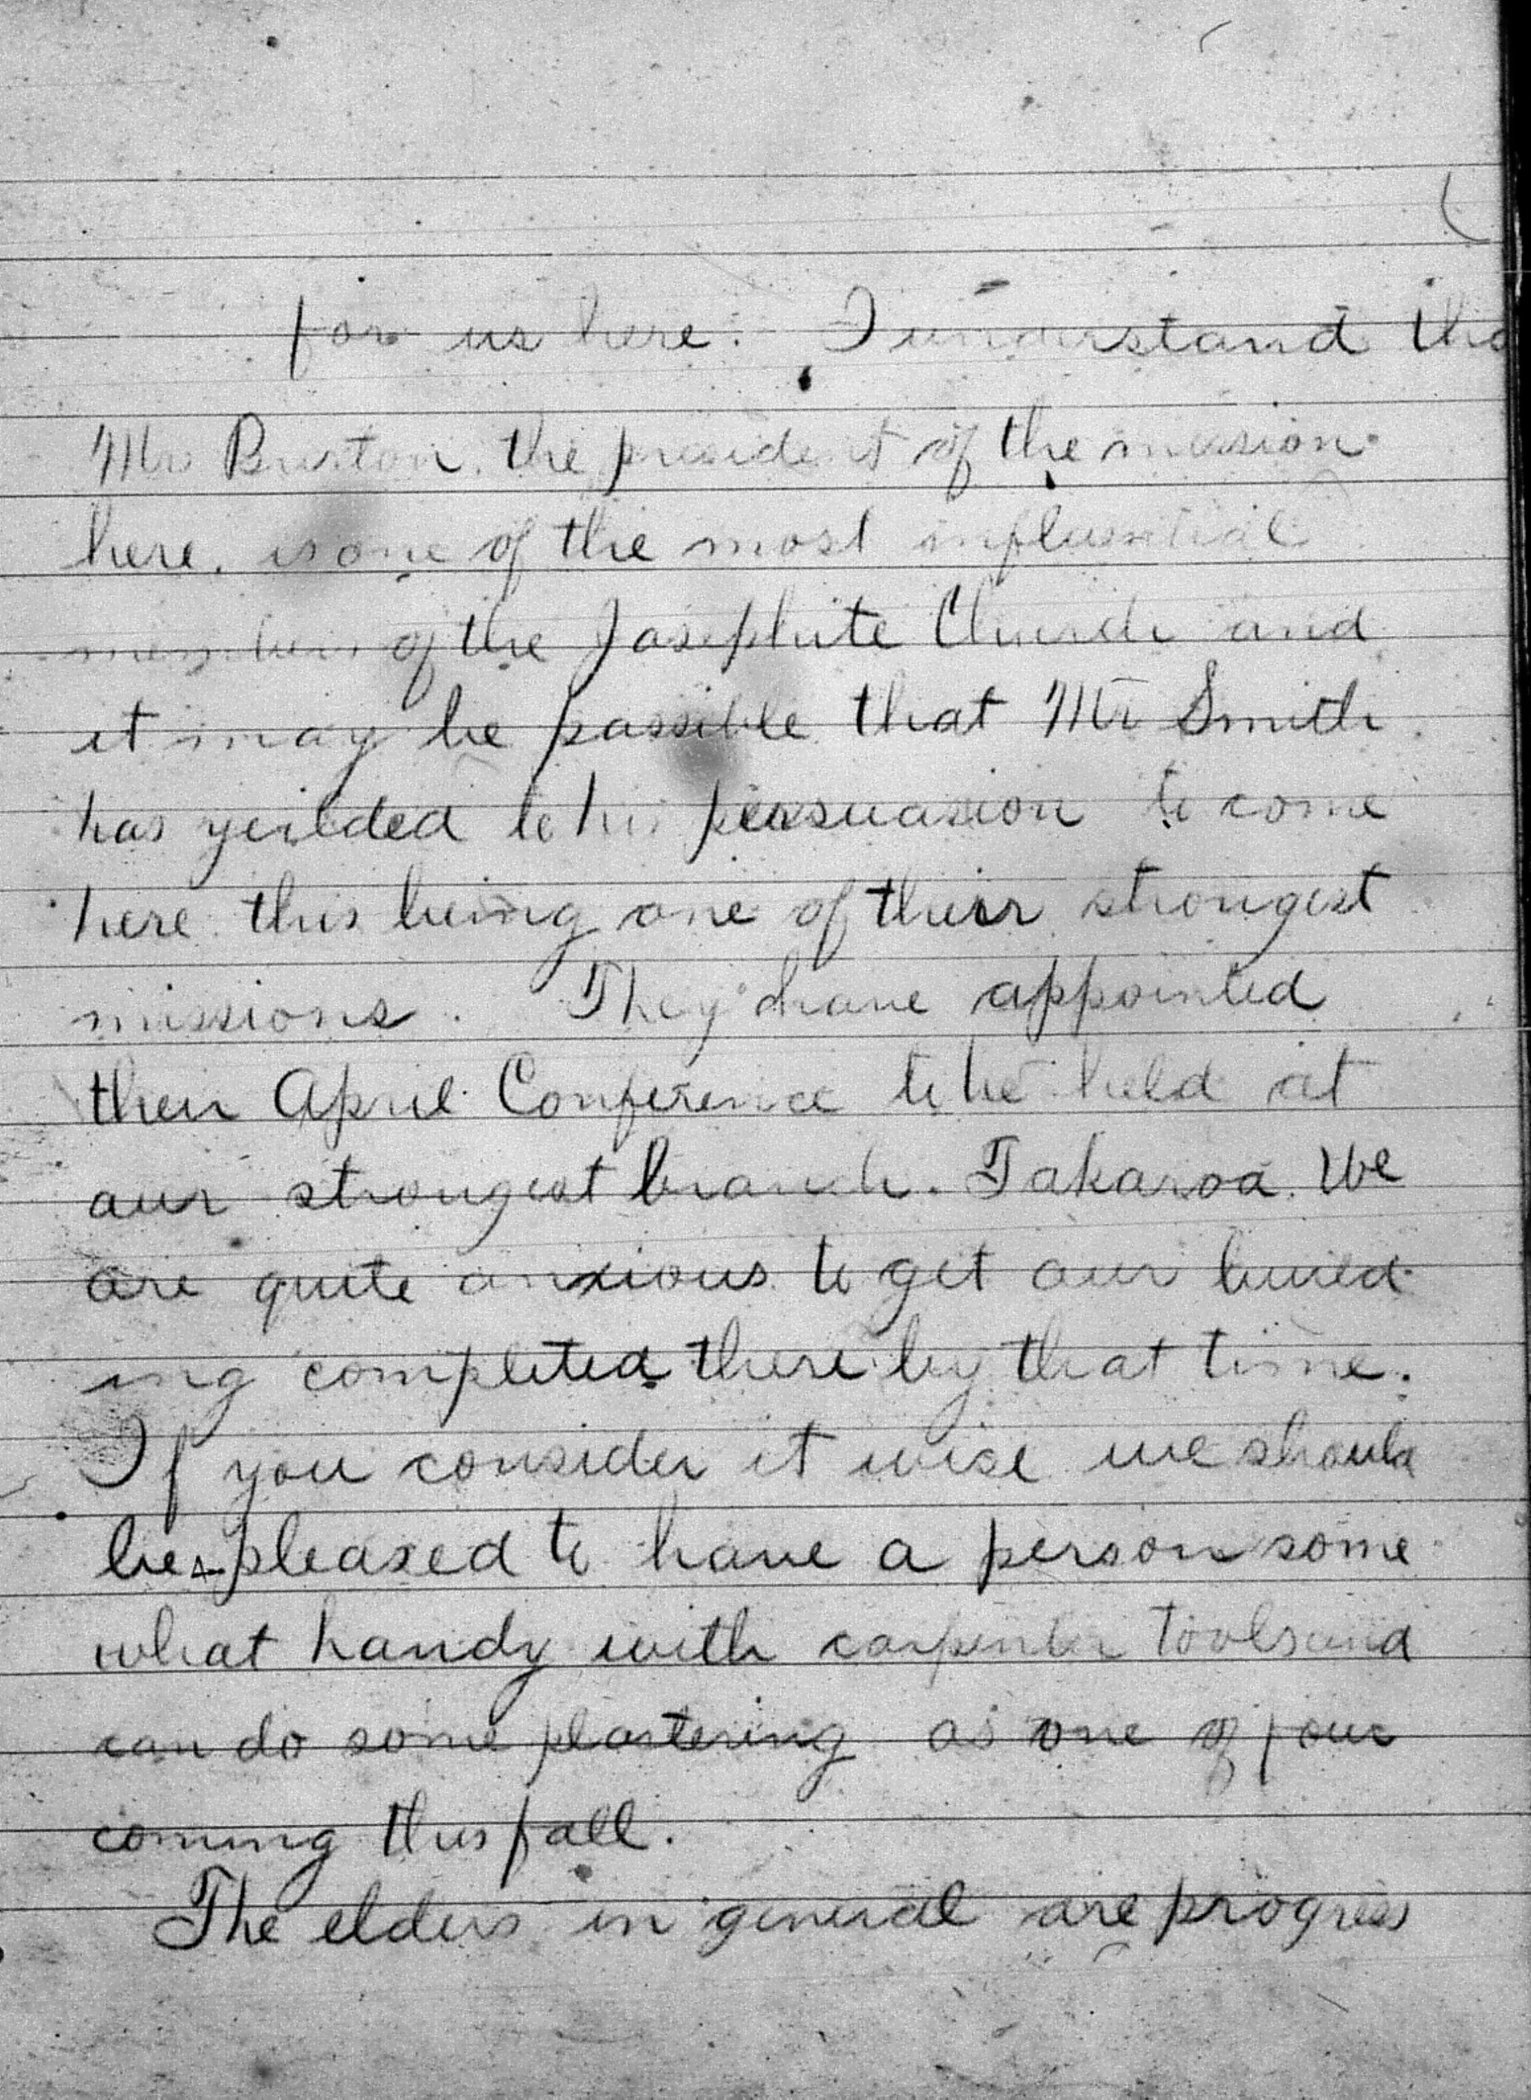 for us here. I understand tha
Mr Burton, the president of the mission
here, is one of the most influential
members of the Josephite Church and
it may be possible that Mr Smith
has yeilded to his persuasion to come
here this being one of their strongest
missions. They have appointed
their April Conference to be held at
our strongest branch. Takaroa. We
are quite anxious to get our build
ing completed there by that time.
If you consider it wise we should
be pleased to have a person some
what handy with carpenter tools and
can do some plastering as one of four
coming this fall.
The elders in general are progress